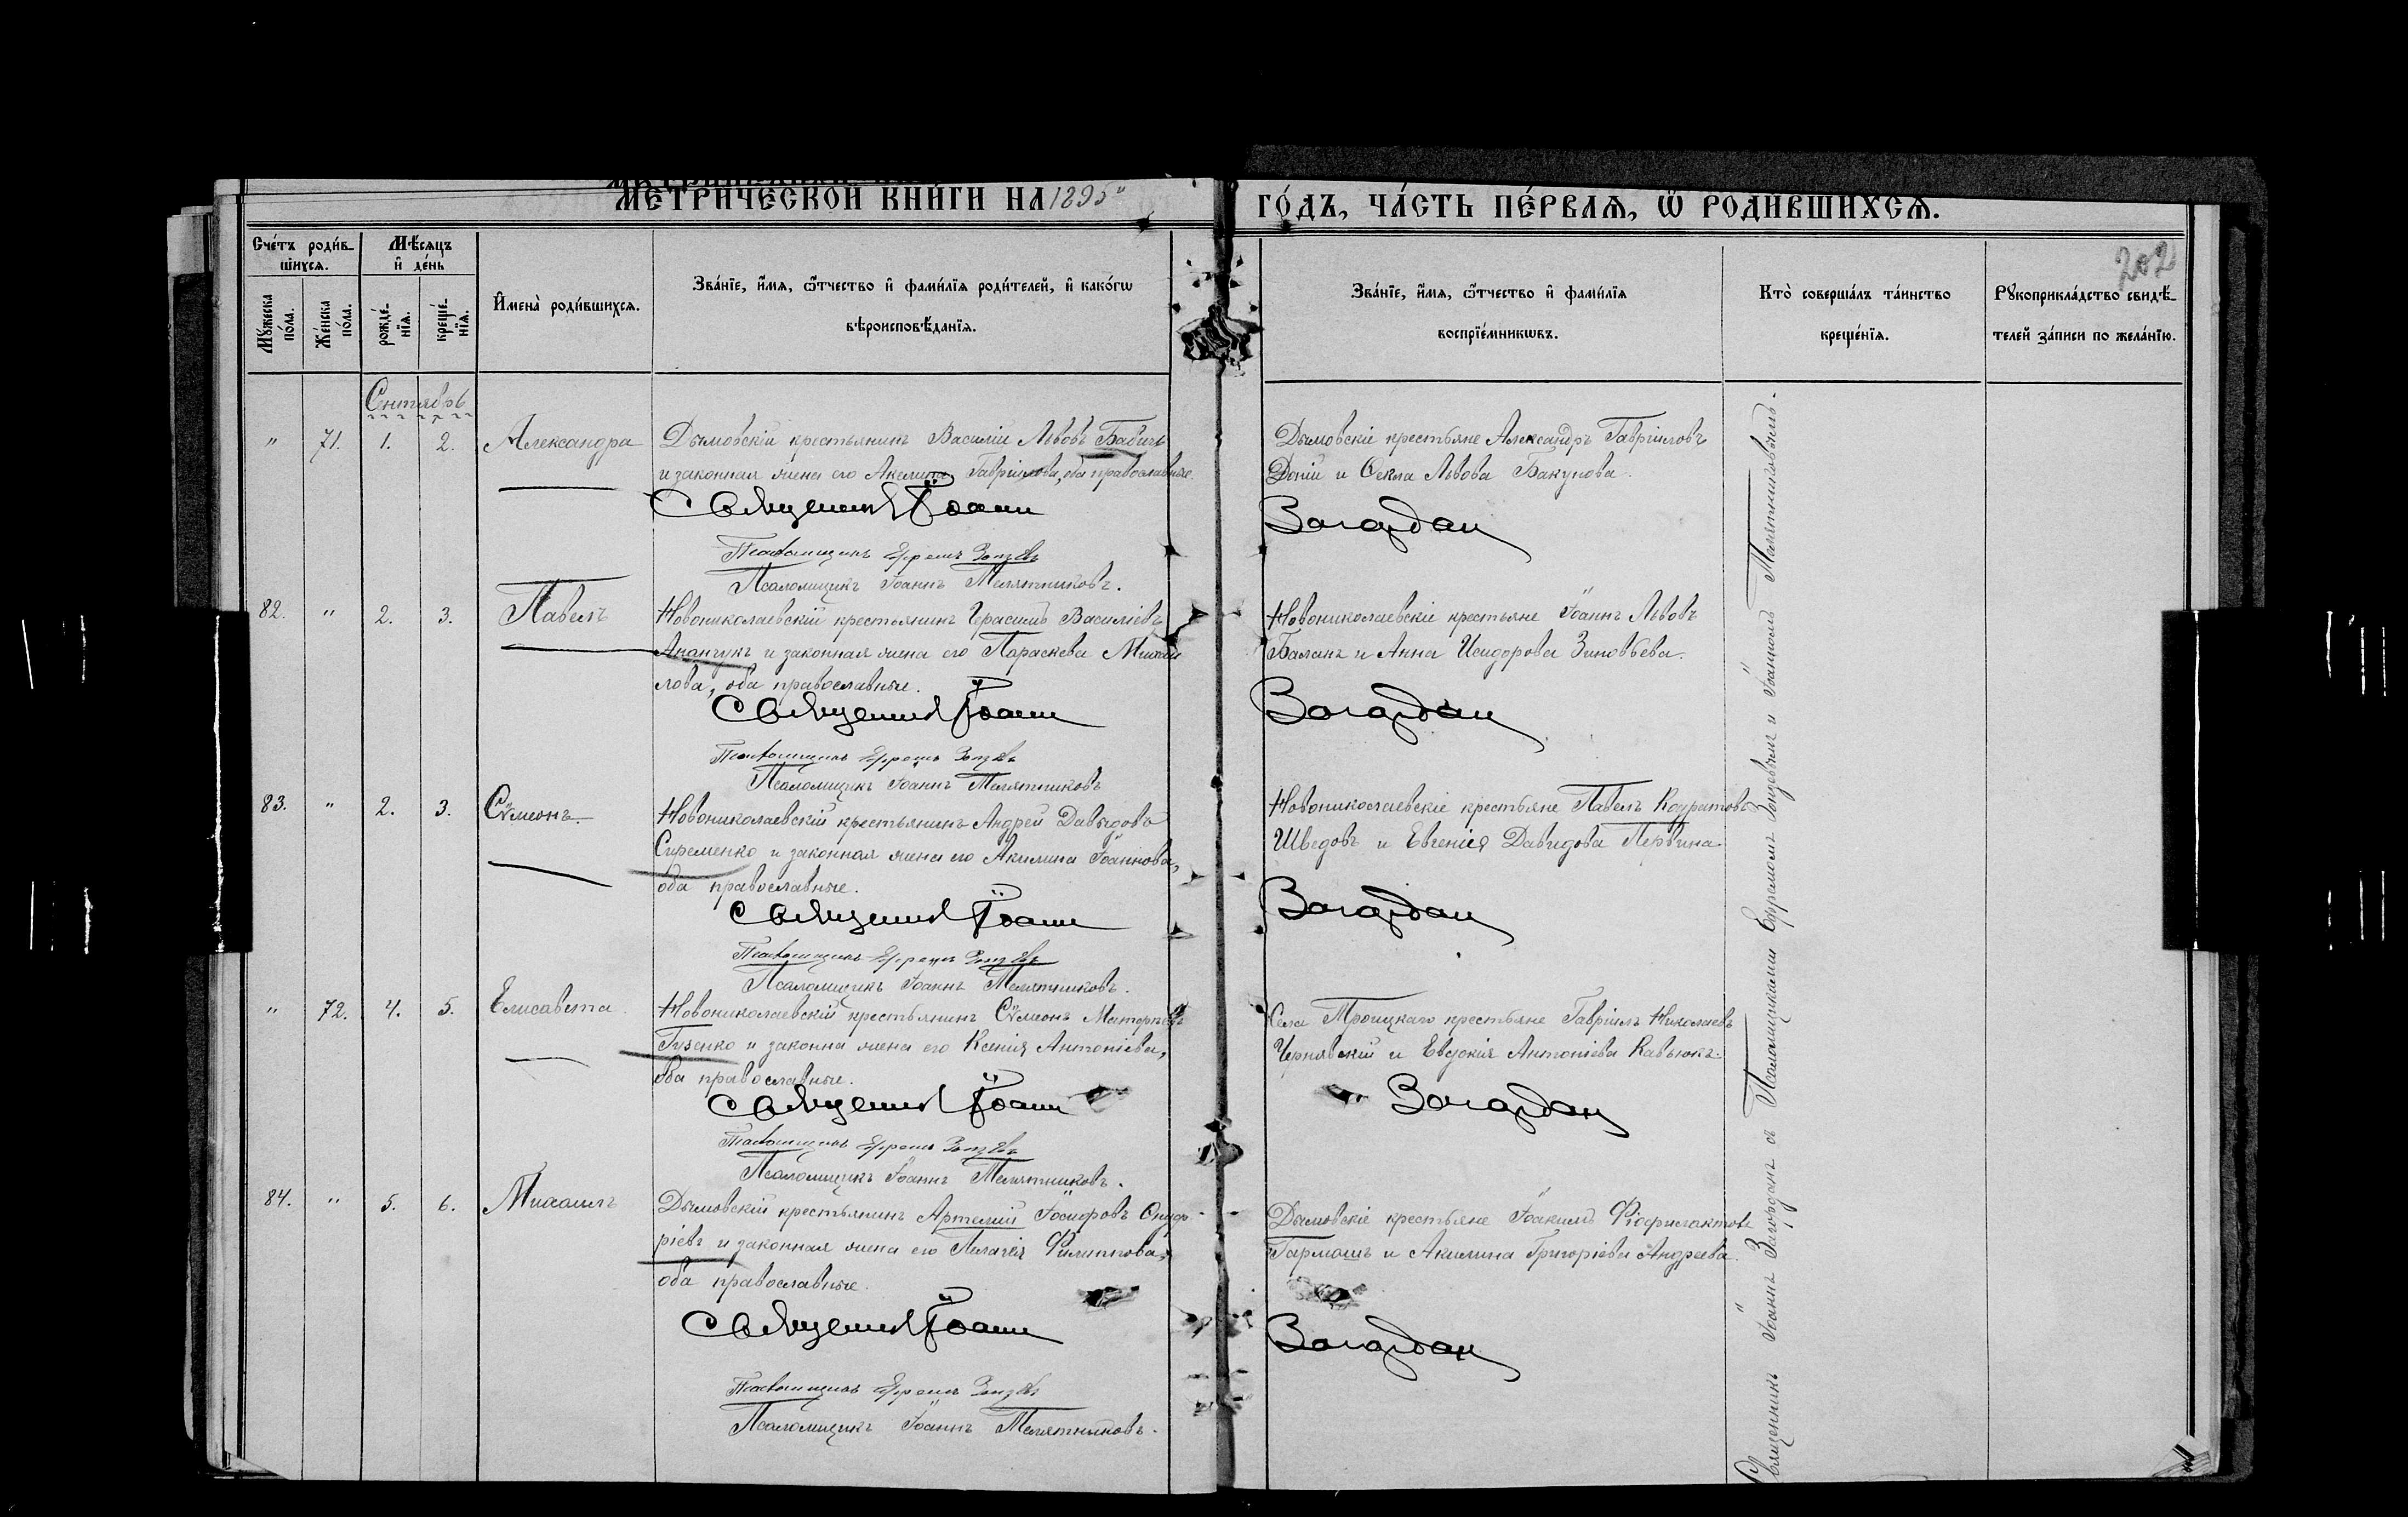 МЕТРИ́ЧЕСКОЙ КНИ́ГИ НА 1895 ГО́ДЪ, ЧА́СТЬ ПЕ́РВАЯ, Ѿ РОДИ́ВШИХСЯ.
202
Сче́тъ роди́в-
шихся.
Мѣ́сяцъ
и҆ де́нь
Мꙋ́жеска
по́ла.
Же́нска
по́ла.
рожде́-
нїѧ.
креще́-
нїѧ.
И҆мена̀ роди́вшихся.
Зва́нїе, и҆́мя, ѻ҆́тчество и҆ фами́лїя роди́телей, и҆ како́гѡ
вѣроисповѣ́данїя.
Зва́нїе, и҆́мя, ѻ҆́тчество и҆ фами́лїя
воспрїе́мникѡвъ.
Кто̀ соверша́лъ та́инство
креще́нїя.
Рꙋкоприкла́дство свидѣ́-
телей за́писи по жела́нїю.
Сентябрь
" 71. 1. 2. Александра
Дымовскій крестьянинъ Василій Львовъ Бабичъ
и законная жена его Акилина Гавріилова, оба православные.
Священникъ Іоаннъ
Псаломщикъ Ефремъ
Псаломщикъ Іоаннъ Телятниковъ.
Дымовскіе крестьяне Александръ Гавріиловъ
Доній и Ѳекла Львова Бакунова
Загордан
82. " 2. 3. Павелъ
Новониколаевскій крестьянинъ Герасимъ Василіевъ
Ананчукъ и законная жена его Параскева Михаи
лова, оба православные.
Священникъ Іоаннъ
Псаломщикъ Ефремъ
Псаломщикъ Іоаннъ Телятниковъ
Новониколаевскіе крестьяне Іоаннъ Львовъ
Баланъ и Анна Исидорова Зиновьева.
Загордан
83. " 2. 3. Сѵмеонъ.
Новониколаевскій крестьянинъ Андрей Давыдовъ
и законная жена его Акилина Іоаннова,
оба православные.
Священникъ Іоаннъ
Псаломщикъ Ефремъ
Псаломщикъ Іоаннъ Телятниковъ.
Новониколаевскіе крестьяне Павелъ Кодратовъ
Шведовъ и Евгенія Давидова Первина
Загордан
" 72. 4. 5. Елисавета
Новониколаевскій крестьянинъ Сѵмеонъ
Гузенко и законна жена его Ксенія Антоніева,
оба православные.
Священникъ Іоаннъ
Псаломщикъ Ефремъ
Псаломщикъ Іоаннъ Телятниковъ.
Села Троицкаго крестьяне Гавріилъ Николаевъ
Чернявскій и Евдокія Антоніева Кавьюкъ.
Загордан
84. " 5. 6. Михаилъ
Дымовскій крестьянинъ Артемій Іосифовъ Онуф
ріевъ и законная жена его Пелагія Филиппова,
оба православные.
Священникъ Іоаннъ
Псаломщикъ Ефремъ
Псаломщикъ Іоаннъ Телятниковъ.
Дымовскіе крестьяне Іоакимъ
Гармашъ и Акилина Григоріева Андреева.
Загордан
Священникъ Іоаннъ Загорданъ съ Псаломщиками Ефремомъ и Іоанномъ Телятниковымъ.